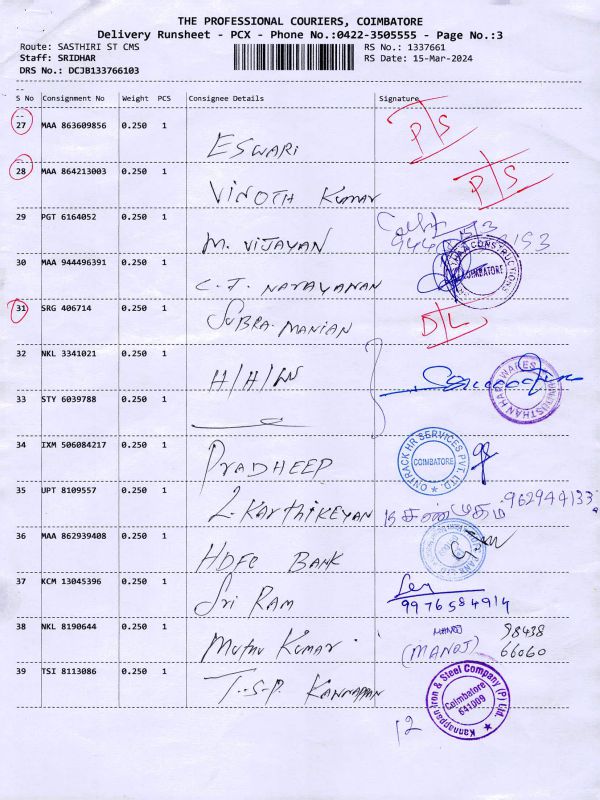 THE PROFESSIONAL COURIERS, COIMBATORE
Delivery Runsheet - PCX - Phone No.:0422-3505555 - Page No.:3
Route: SASTHIRI ST CMS RS No.: 1337661
Staff: SRIDHAR RS Date: 15-Mar-2024
DRS No.: DCJB133766103
S No Consignment No Weight PCS Consignee Details Signature
27 MAA 863609856 0.250 1 ESWARI P/S
28 MAA 864213003 0.250 1 VINOTH KUMAR P/S
29 PGT 6164052 0.250 1 M. VIJAYAN
30 MAA 944496391 0.250 1 C.J. NARAYANAN CONSTRUCTIONS COIMBATORE
31 SRG 406714 0.250 1 SUBRA.MANIAN D/L
32 NKL 3341021 0.250 1 H/H/W HINDUSTHAN HARDWARES
33 STY 6039788 0.250 1
34 IXM 506084217 0.250 1 PRADHEEP ONTRACK HR SERVICES PVT. LTD COIMBATORE
35 UPT 8109557 0.250 1 L. KARTHIKEYAN சண்முகம் 962944133
36 MAA 862939408 0.250 1 HDFC BANK
37 KCM 13045396 0.250 1 Sri RAM
9976584914
38 NKL 8190644 0.250 1 MUTHU KUMAR MANOJ (MANOJ) 98438 66060
39 TSI 8113086 0.250 1 T.S.P. KANNAPPAN Kannappan Iron & Steel Company (P) Ltd. Coimbatore 641009
12